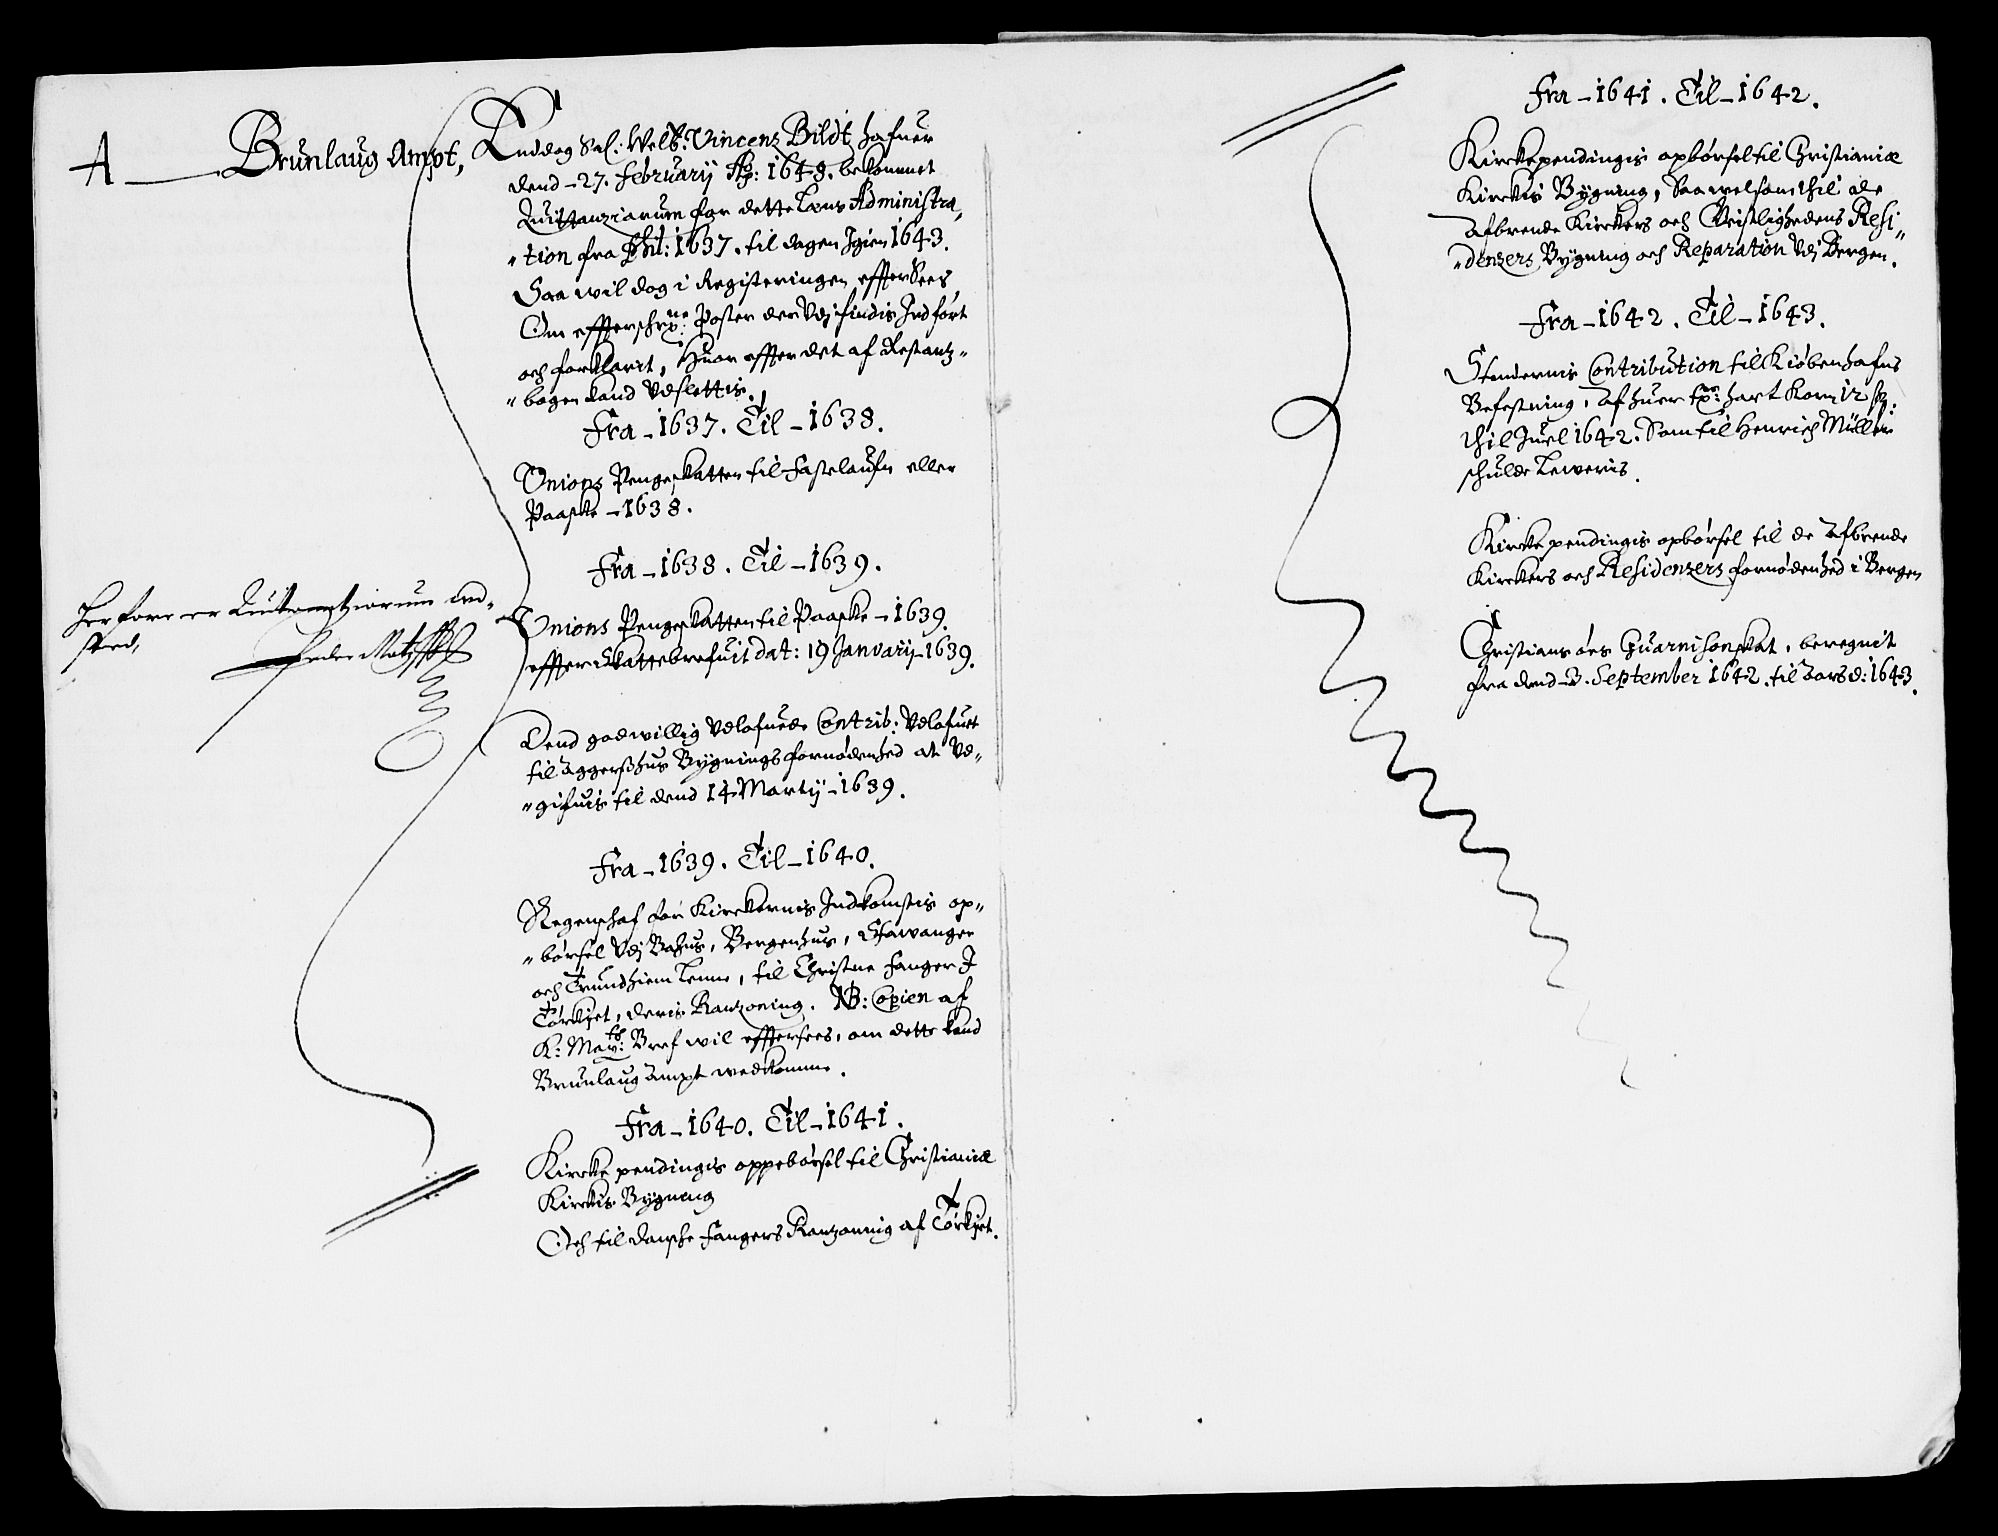 A ___ Brunlaug Ampt,
Enddog Sal: Welb: Vincenz Bildt hafuer
dend - 27. februarij Ao: 1648. bekommet
Quittanziarum for dette Læns Administra,
"tion fra Phil: 1637. til dagen Igien 1643.
Saa wil dog i Registeringen effterSees,
Om effterschrne: Poster der Vdj findis Indført
och forklarit, Huor effter det af Restantz-
"bogen kand Vdslettis.
Fra - 1637. Til - 1638.
Unions Pengeskatten til Fastelaufn eller
Paaske - 1638.
Fra - 1638. Til - 1639.
Herfore er Quitantziarum
sted,
Peder
Unions Pengeskatten til Paaske - 1639.
effter Skattebrefuit dat: 19 Januarij - 1639.
Dend godwillig Vdlofuede Contrib: Vdlofuet
til Aggerßhus Bygnings fornødenhed at Vd-
"gifuis til dend 14 Martij - 1639.
Fra - 1639. Til - 1640.
Regenschaf for Kirckernis Indkomstis op-
"børsel Vdj Bahus, Bergenhus, Stawanger
och Trundhiem Lenne, til Christne fanger I
Tørkjet, deris Rantzoning. NB: Copien af
K: Maytz: Bref wil efftersees, om dette kand
Brunlaug Ampt wedkomme.
Fra - 1640. Til - 1641.
Kircke pendingis oppebørsel til Christianiæ
Kirckis Bygning
Och til danske Fangers Rantzonnig af Tørkjet.
Fra - 1641. Til - 1642.
Kirckependingis opbørsel til Christianiæ
Kirckis Bygning, Saawelsom thil de
Afbrende Kirckers och Geistlighedens Resi-
"denzers Bygning och Reparation Vdj Bergen.
Fra - 1642. Til - 1643.
Stendernis Contribution til Kiøbenhafns
Befestning, Af huer hart Korn 12
thil Juel 1642. Som til Henrich Müller
schulde Leweris.
Kircke pendingis opbørsel til de Afbrende
Kirckers och Residenzers fornødenhed i Bergen
Christiansøes Guarnisonskat, beregnet
fra dend - 3. September 1642. til Aarsd: 1643.